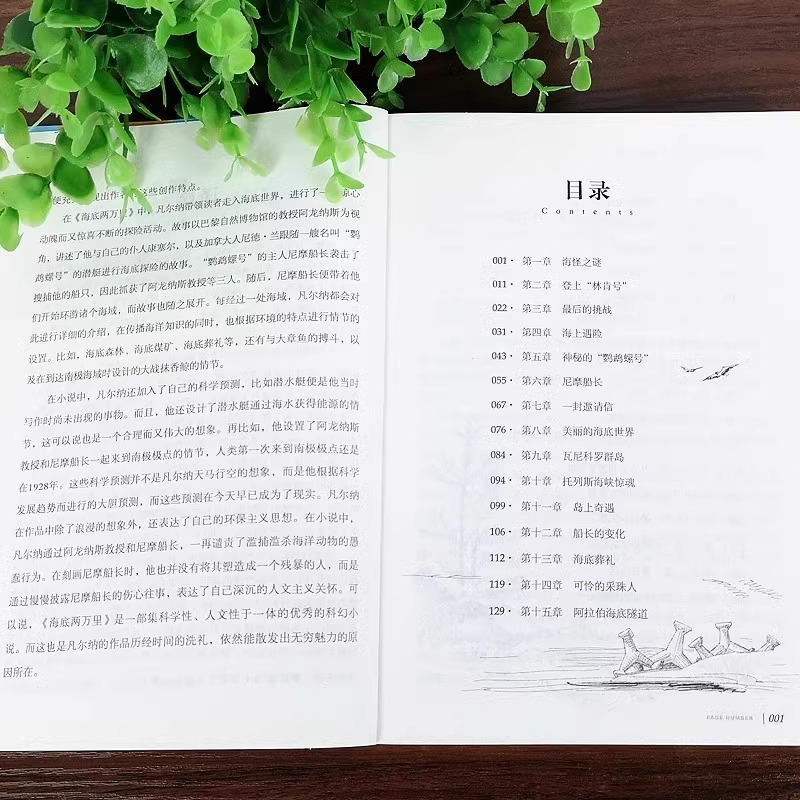 使充 现出作 这些创作特点。
在《海底两万里》中，凡尔纳带领读者走入海底世界，进行了一 惊心
动魄而又惊喜不断的探险活动。故事以巴黎自然博物馆的教授阿龙纳斯为视
角，讲述了他与自己的仆人康塞尔，以及加拿大人尼德·兰跟随一艘名叫“鹦
鹉螺号”的潜艇进行海底探险的故事。“鹦鹉螺号”的主人尼摩船长袭击了
搜捕他的船只，因此抓获了阿龙纳斯教授等三人。随后，尼摩船长便带着他
们开始环游诸个海域，而故事也随之展开。每经过一处海域，凡尔纳都会对
此进行详细的介绍，在传播海洋知识的同时，也根据环境的特点进行情节的
设置。比如，海底森林、海底煤矿、海底葬礼等，还有与大章鱼的搏斗，以
及在到达南极海域时设计的大战抹香鲸的情节。
在小说中，凡尔纳还加入了自己的科学预测，比如潜水艇便是他当时
写作时尚未出现的事物。而且，他还设计了潜水艇通过海水获得能源的情
节，这可以说也是一个合理而又伟大的想象。再比如，他设置了阿龙纳斯
教授和尼摩船长一起来到南极极点的情节，人类第一次来到南极极点还是
在1928年。这些科学预测并不是凡尔纳天马行空的想象，而是他根据科学
发展趋势而进行的大胆预测，而这些预测在今天早已成为了现实。凡尔纳
在作品中除了浪漫的想象外，还表达了自己的环保主义思想。在小说中，
凡尔纳通过阿龙纳斯教授和尼摩船长，一再谴责了滥捕滥杀海洋动物的愚
蠢行为。在刻画尼摩船长时，他也并没有将其塑造成一个残暴的人，而是
通过慢慢披露尼摩船长的伤心往事，表达了自己深沉的人文主义关怀。可
以说，《海底两万里》是一部集科学性、人文性于一体的优秀的科幻小
说。而这也是凡尔纳的作品历经时间的洗礼，依然能散发出无穷魅力的原
因所在。
目录
Contents
001· 第一章 海怪之谜
011· 第二章 登上“林肯号”
022· 第三章 最后的挑战
031· 第四章 海上遇险
043· 第五章 神秘的“鹦鹉螺号”
055· 第六章 尼摩船长
067· 第七章 一封邀请信
076· 第八章 美丽的海底世界
084· 第九章 瓦尼科罗群岛
094· 第十章 托列斯海峡惊魂
099· 第十一章 岛上奇遇
106· 第十二章 船长的变化
112· 第十三章 海底葬礼
119· 第十四章 可怜的采珠人
129· 第十五章 阿拉伯海底隧道
PAGE NUMBER | 001